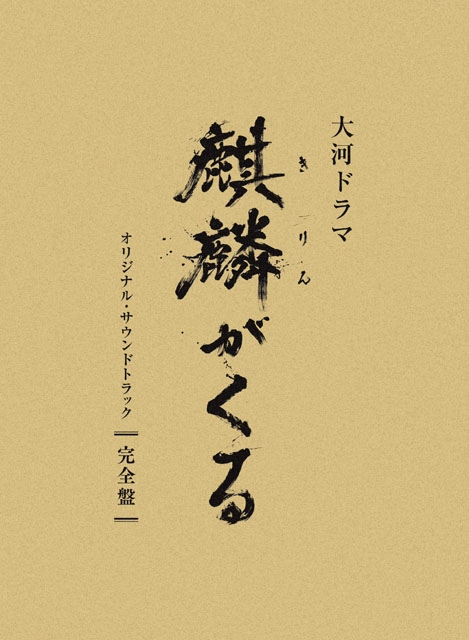 大河ドラマ
麒麟がくる
きりん
オリジナル・サウンドトラック
完全盤